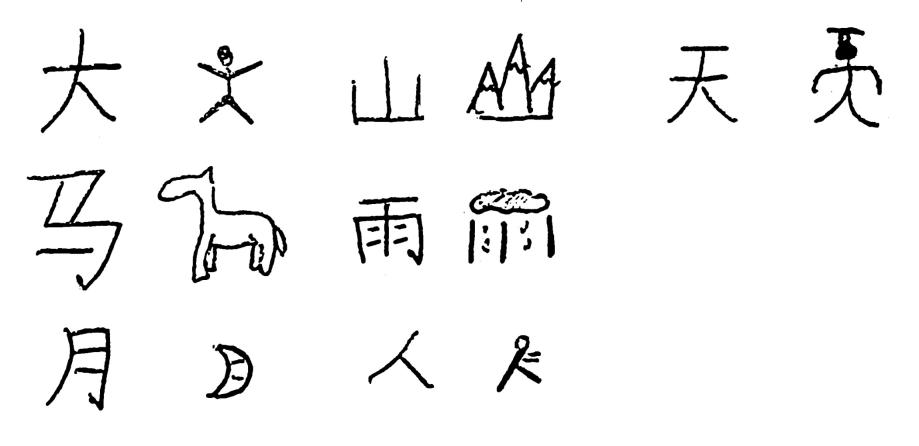 大 山 天
马 雨
月 人